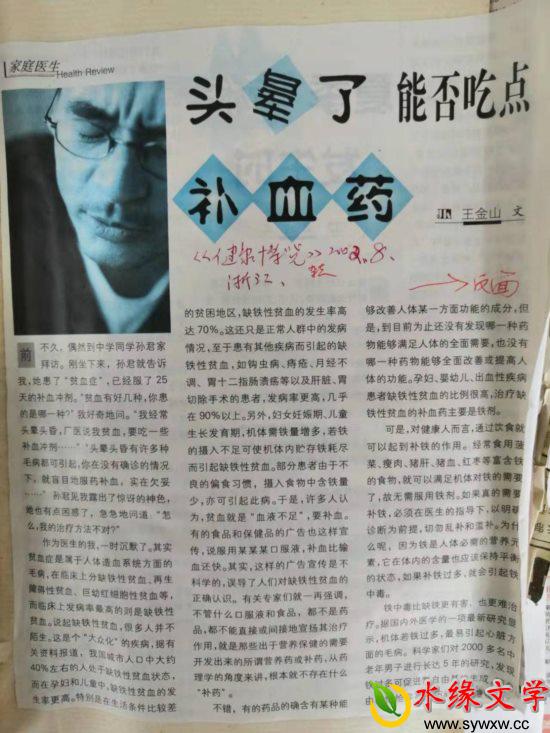 家庭医生
Health Review
头晕了 能否吃点
补血药
王金山 文
2002.8.
浙江、
→反面
前
不久，偶然到中学同学孙君家
拜访。刚坐下来，孙君就告诉
我，她患了“贫血症”，已经服了25
天的补血冲剂。“贫血有好几种，你患
的是哪一种？”我好奇地问。“我经常
头晕头昏，厂医说贫血，要吃一些
补血冲剂……”“头晕头昏有许多种
毛病都可引起，你在没有确诊的情况
下，就盲目地服药补血，实在欠妥
……”孙君见我露出了惊讶的神色，
她也有点困惑了，急急地问道：“怎
么，我的治疗方法不对？”
作为医生的我，一时沉默了。其实
贫血症是属于人体造血系统方面的
毛病，在临床上分缺铁性贫血、再生
障碍性贫血、巨幼红细胞性贫血等，
而临床上发病率最高的则是缺铁性
贫血。说起缺铁性贫血，很多人并不
陌生。这是个“大众化”的疾病，据有
关资料报道，我国城市人口中大约
40%左右的人处于缺铁性贫血状态，
而在孕妇和儿童中，缺铁性贫血的发
生率更高。特别是在生活条件比较差
的贫困地区，缺铁性贫血的发生率高
达70%。这还只是正常人群中的发病
情况，至于患有其他疾病而引起的缺
铁性贫血，如钩虫病、痔疮、月经不
调、胃十二指肠溃疡等以及肝脏、胃
切除手术的患者，发病率更高，几乎
在90%以上。另外，妇女妊娠期、儿童
生长发育期，机体需铁量增多，若铁
的摄入不足可使机体内贮存铁耗尽
而引起缺铁性贫血。部分患者由于不
良的偏食习惯，摄入食物中含铁量
少，亦可引起此病。于是，许多人认
为，贫血就是“血液不足”，要补血。
有的食品和保健品的广告也这样宣
传，说服用某某某口服液，补血比输
血还快。其实，这样的广告宣传是不
科学的，误导了人们对缺铁性贫血的
正确认识。有关专家们就一再强调，
不管什么口服液和食品，都不是药
品，都不能直接或间接地宣扬其治疗
作用，就是那些出于营养保健的需要
开发出来的所谓营养药或补药，从药
理学的角度来讲，根本就不存在什么
“补药”。
不错，有的药品的确含有某种能
够改善人体某一方面功能的成分，但
是，到目前为止还没有发现哪一种药
物能够满足人体的全面需要，也没有
哪一种药物能够全面改善或提高人
体的功能。孕妇、婴幼儿、出血性疾病
患者缺铁性贫血的比例很高，治疗缺
铁性贫血的补血药主要是铁剂。
可是，对健康人而言，通过饮食就
可以起到补铁的作用。经常食用菠
菜、瘦肉、猪肝、猪血、红枣等富含铁
的食物，就可以满足机体对铁的需要
了，故无需服用铁剂。如果真的需要
补铁，必须在医生的指导下，以明确
诊断为前提，切勿乱补和滥补。为什
么呢，因为铁是人体必需的营养元
素，它在体内的含量也应该保持平衡
的状态，如果补铁过多，就会引起铁
中毒。
铁中毒比缺铁更有害，也更难治
疗。据国内外医学的一项最新研究显
示，机体若铁过多，最易引起心脏方
面的毛病。科学家们对2000多名中
老年男子进行长达5年的研究，发现
水缘文学
www.sywxw.cc